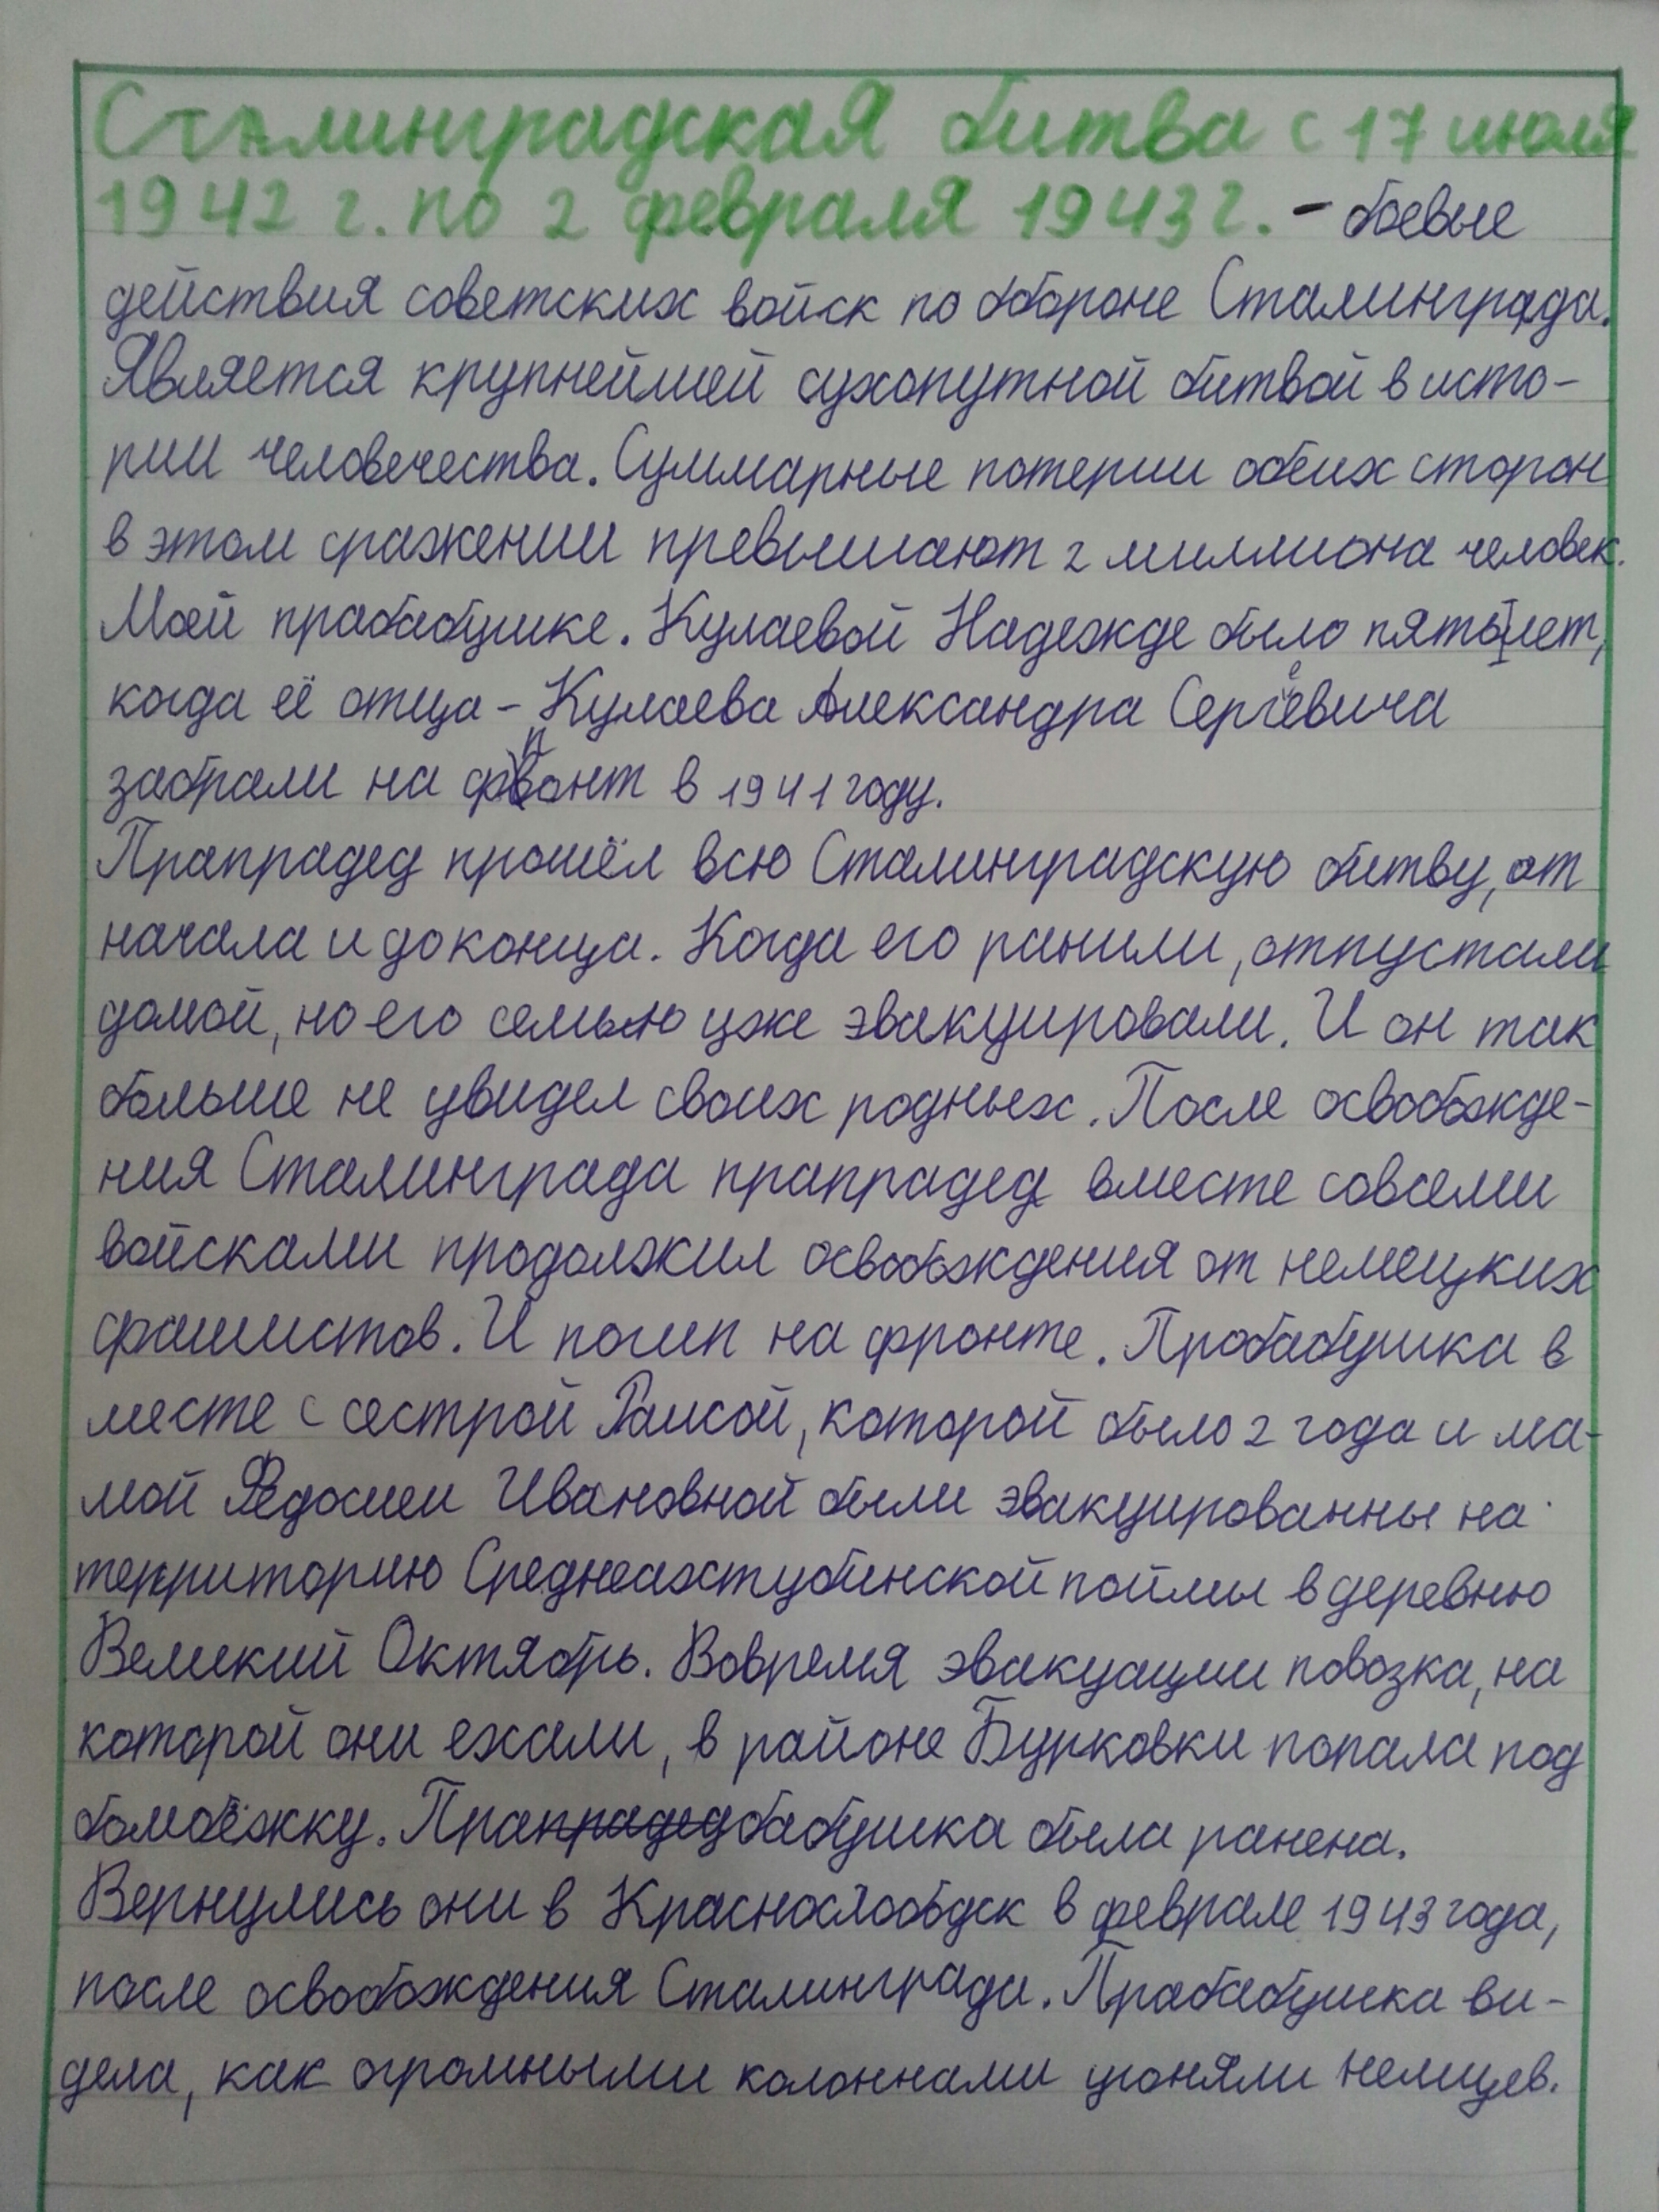 Сталинградская битва с 17 июля
1942 г. по 2 февраля 1943 г. – боевые
действия советских войск по обороне Сталинграда.
Является крупнейшей сухопутной битвой в исто-
рии человечества. Суммарные потерии обеих сторон
в этом сражении превышают 2 миллиона человек.
Моей прабабушке. Кулаевой Надежде было пять лет,
когда её отца – Кулаева Александра Сергеевича
забрали на фронт в 1941 году.
Прапрадед прошёл всю Сталинградскую битву, от
начала и до конца. Когда его ранили, отпустали
домой, но его семью уже эвакуировали. И он так
больше не увидел своих родных. После освобожде-
ния Сталинграда прапрадед вместе совсеми
войсками продолжил освобождения от немецких
фашистов. И погип на фронте. Пробабушка в
месте с сестрой Раисой, которой было 2 года и ма-
мой Федосией Ивановной были эвакуированны на
территорию Среднеахтубинской поймы в деревню
Великий Октябрь. Вовремя эвакуации повозка, на
которой они ехали, в районе Бурковки попала под
бомбёжку. Прапрадедбабушка была ранена.
Вернулись они в Краснослободск в феврале 1943 года,
после освобождения Сталинграда. Прабабушка ви-
дела, как огромными колоннами угоняли немцев.